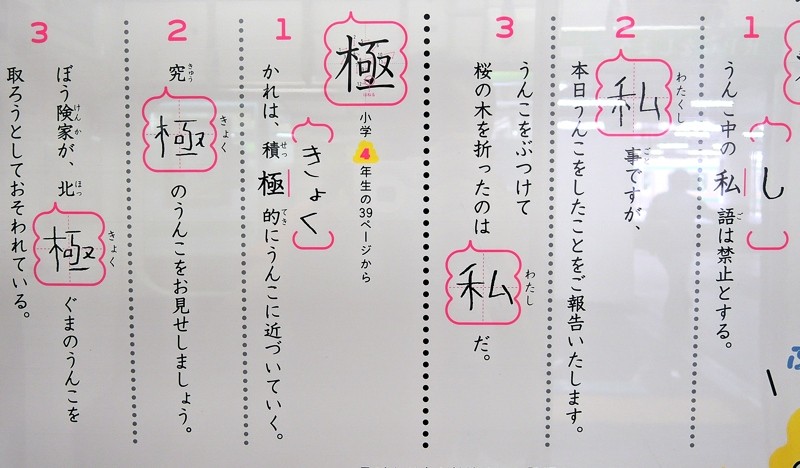 1
し
うんこ中の私語は禁止とする。
ご
2
わたくし
私事ですが、
ごと
本日うんこをしたことをご報告いたします。
3
うんこをぶつけて
桜の木を折ったのは私だ。
わたし
極
小学4年生の39ページから
1
きょく
かれは、積極的にうんこに近づいていく。
せっ
てき
2
究極のうんこをお見せしましょう。
きゅう
きょく
3
ぼう険家が、北極ぐまのうんこを
けん
か
ほっ
きょく
取ろうとしておそわれている。